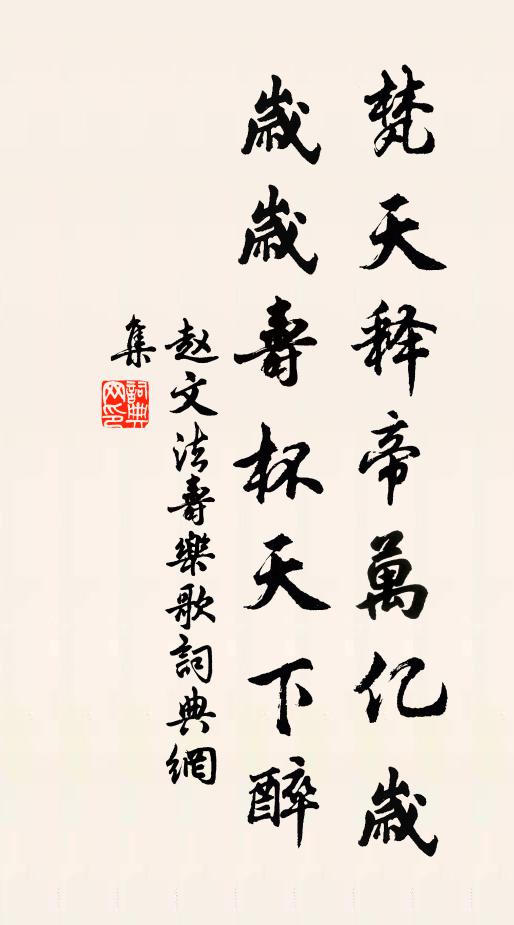 梵天释帝萬亿歲
歲歲壽杯天下醉
赵文法壽樂歌詞典網
集
詞典网印